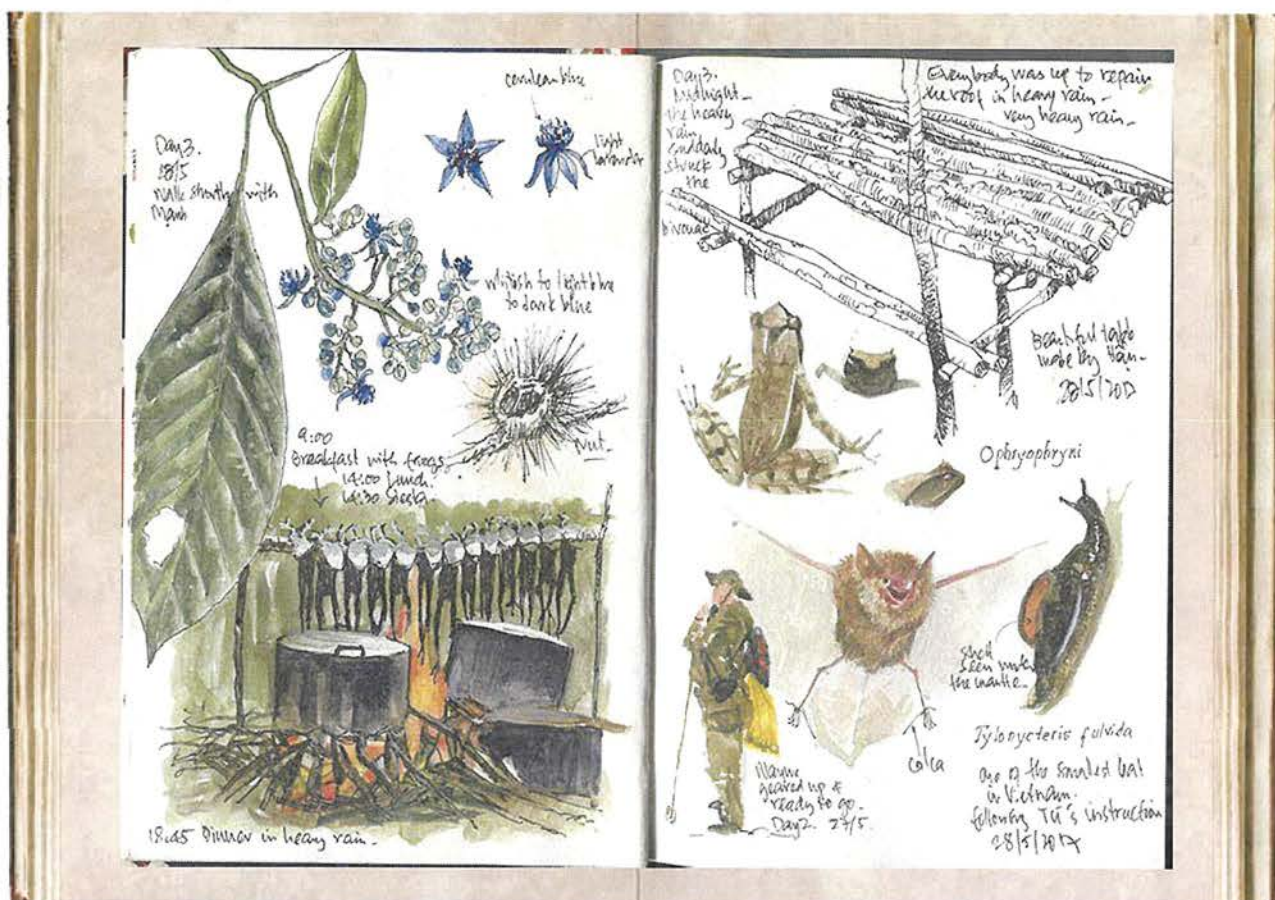 Day 3.
28/5
Walk shortly with
Mạnh
cerulean blue
light
lavender
whitish to light blue
to dark blue
Nut.
9:00
Breakfast with frogs
14:00 Lunch.
14:30 Siesta
18:45 Dinner in heavy rain.
Day 3.
Midnight -
the heavy
rain
suddenly
struck
the
bivouac
Everybody was up to repair
the roof in heavy rain -
very heavy rain -
Beautiful table
made by
28/5/2017
Ophryophryni
shell
seen under
the mantle -
Wayne
geared up &
ready to go -
Day 2. 27/5.
calca
Tylonycteris fulvida
one of the smallest bat
in Vietnam.
following Tú's instruction
28/5/2017